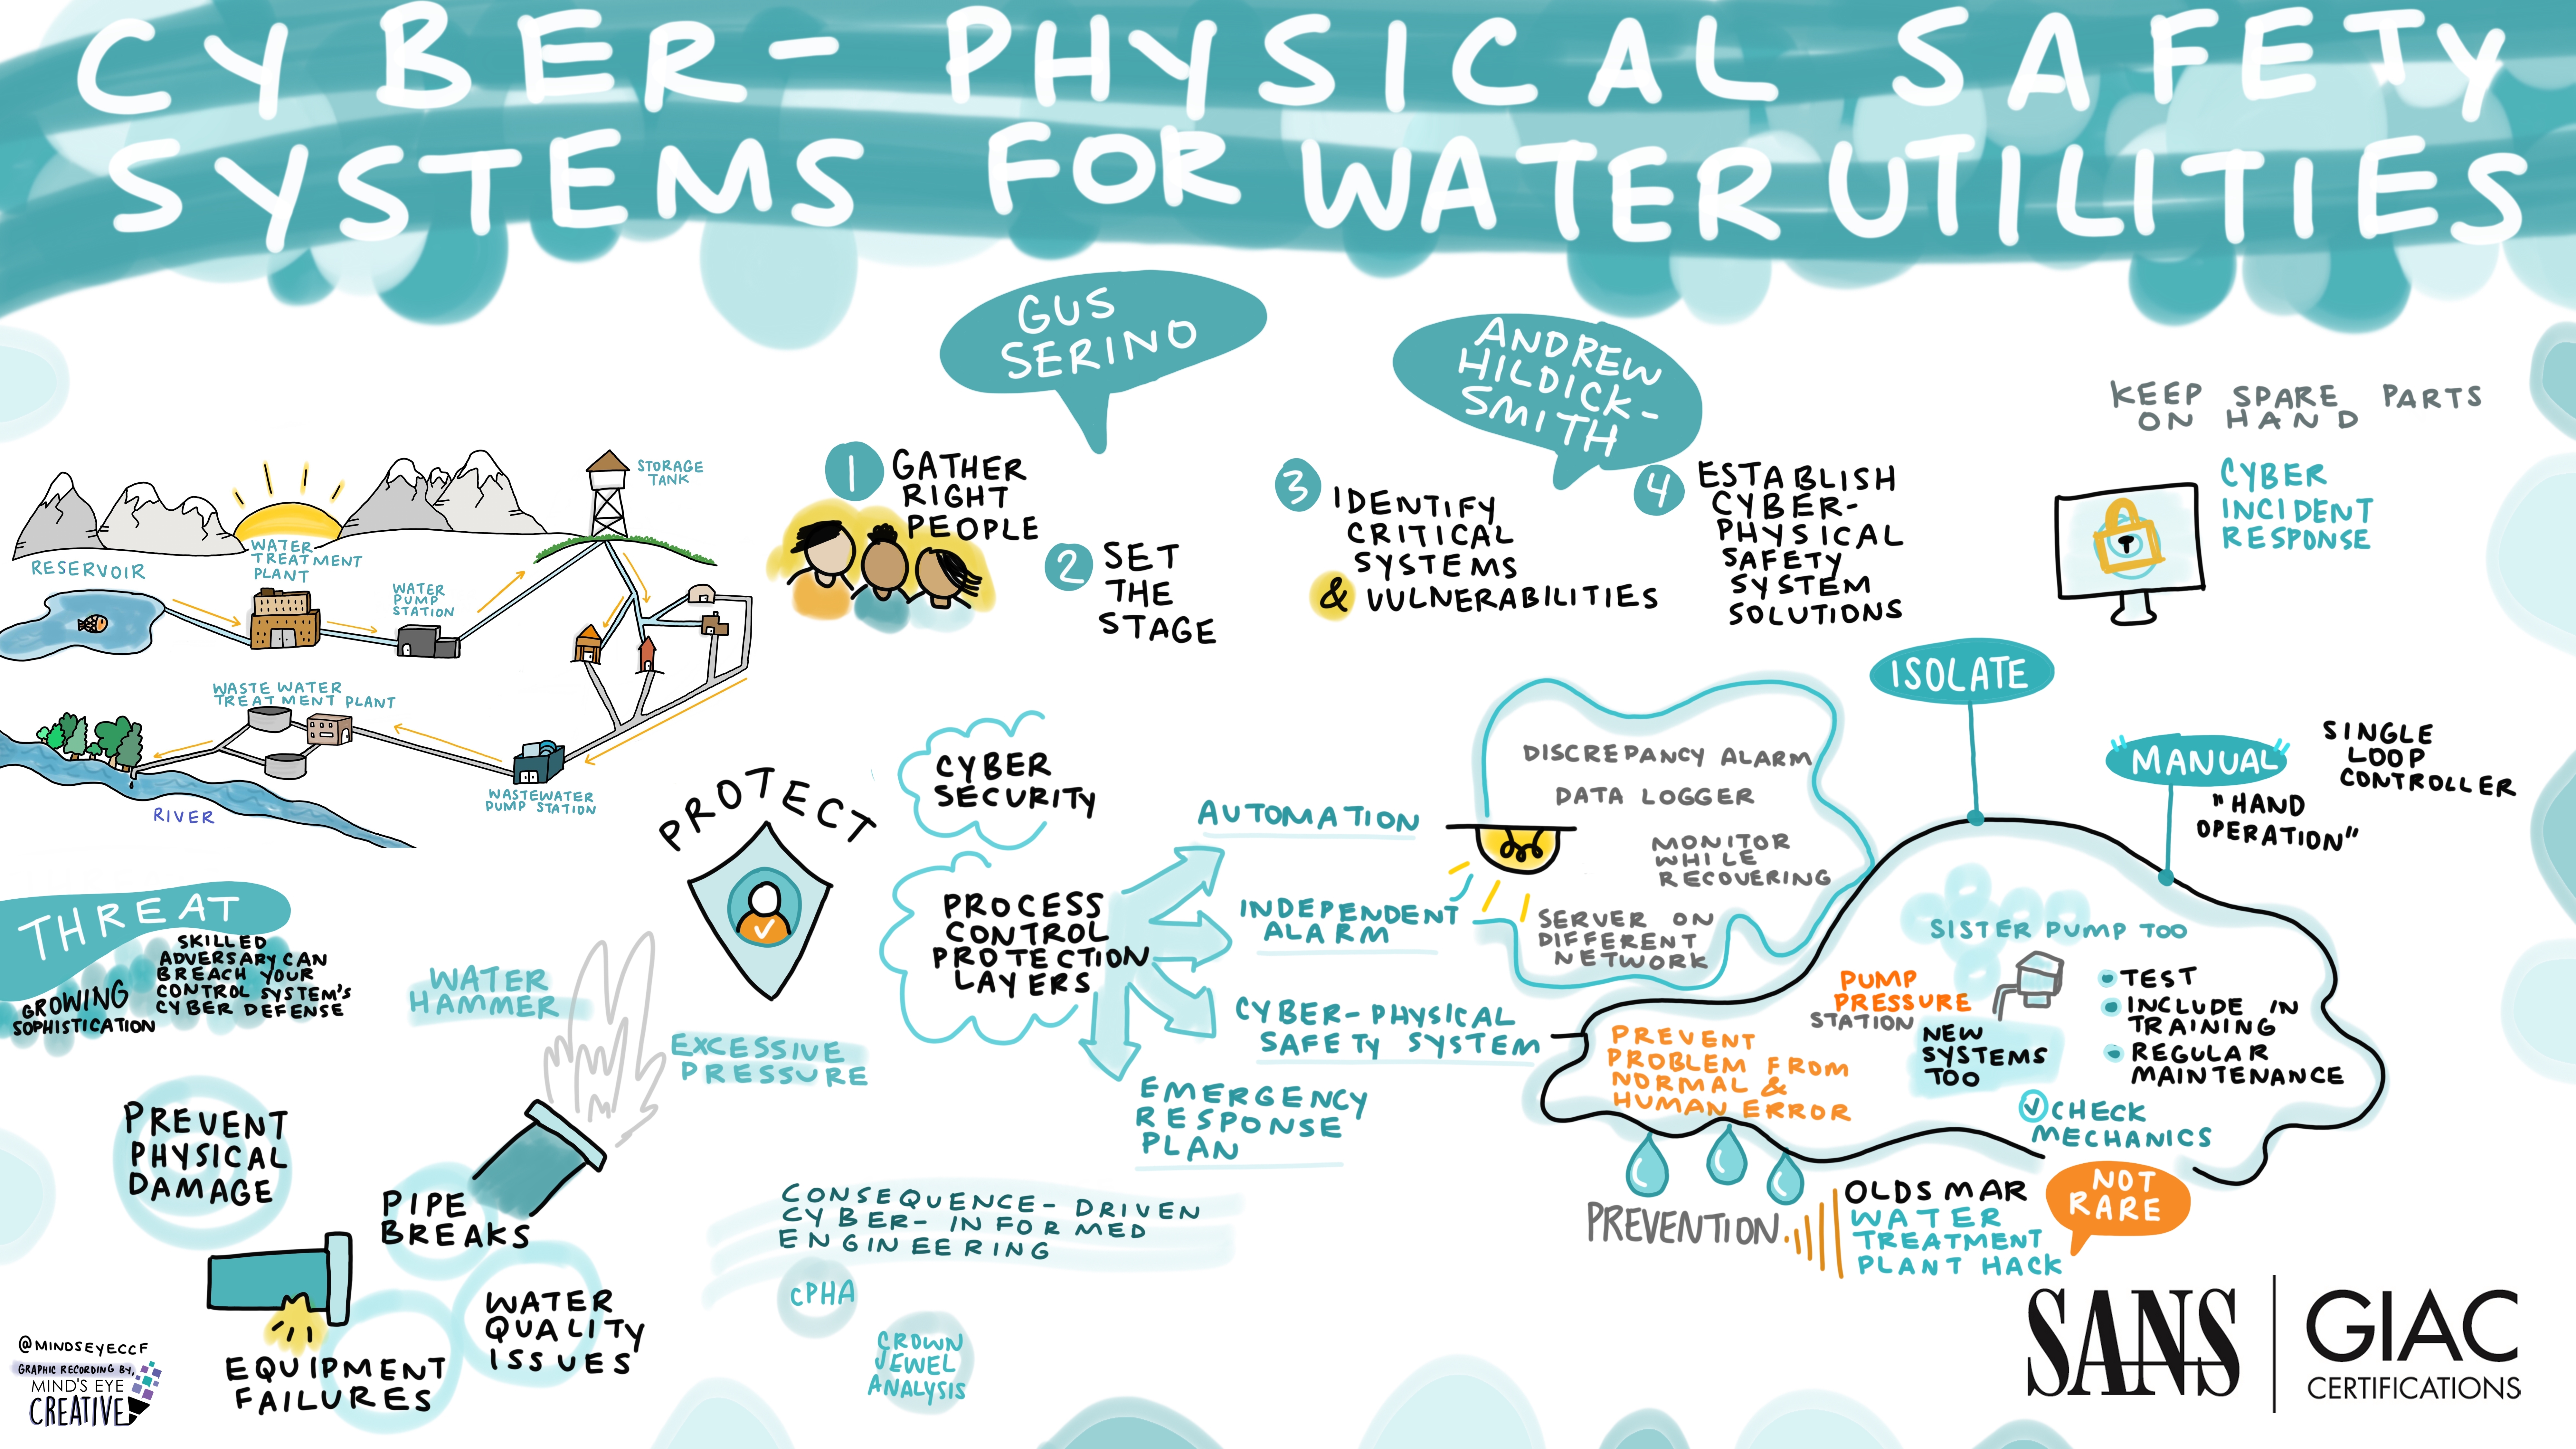 CYBER-PHYSICAL SAFETY
SYSTEMS FOR WATER UTILITIES
GUS
SERINO
ANDREW
HILDICK-
SMITH
1 GATHER
RIGHT
PEOPLE
2 SET
THE
STAGE
3 IDENTIFY
CRITICAL
SYSTEMS
& VULNERABILITIES
4 ESTABLISH
CYBER-
PHYSICAL
SAFETY
SYSTEM
SOLUTIONS
KEEP SPARE PARTS
ON HAND
CYBER
INCIDENT
RESPONSE
STORAGE
TANK
RESERVOIR
WATER
TREATMENT
PLANT
WATER
PUMP
STATION
WASTE WATER
TREATMENT PLANT
WASTEWATER
PUMP STATION
RIVER
THREAT
GROWING
SOPHISTICATION
SKILLED
ADVERSARY CAN
BREACH YOUR
CONTROL SYSTEM'S
CYBER DEFENSE
WATER
HAMMER
EXCESSIVE
PRESSURE
PREVENT
PHYSICAL
DAMAGE
PIPE
BREAKS
EQUIPMENT
FAILURES
WATER
QUALITY
ISSUES
PROTECT
CYBER
SECURITY
PROCESS
CONTROL
PROTECTION
LAYERS
AUTOMATION
INDEPENDENT
ALARM
CYBER-PHYSICAL
SAFETY SYSTEM
EMERGENCY
RESPONSE
PLAN
CONSEQUENCE-DRIVEN
CYBER-INFORMED
ENGINEERING
CPHA
CROWN
JEWEL
ANALYSIS
DISCREPANCY ALARM
DATA LOGGER
MONITOR
WHILE
RECOVERING
SERVER ON
DIFFERENT
NETWORK
ISOLATE
"MANUAL"
SINGLE
LOOP
CONTROLLER
"HAND
OPERATION"
SISTER PUMP TOO
PUMP
PRESSURE
STATION
NEW
SYSTEMS
TOO
TEST
INCLUDE IN
TRAINING
REGULAR
MAINTENANCE
CHECK
MECHANICS
PREVENT
PROBLEM FROM
NORMAL &
HUMAN ERROR
PREVENTION
OLDSMAR
WATER
TREATMENT
PLANT HACK
NOT
RARE
@MINDSEYECCF
GRAPHIC RECORDING BY,
MIND'S EYE
CREATIVE
SANS
GIAC
CERTIFICATIONS